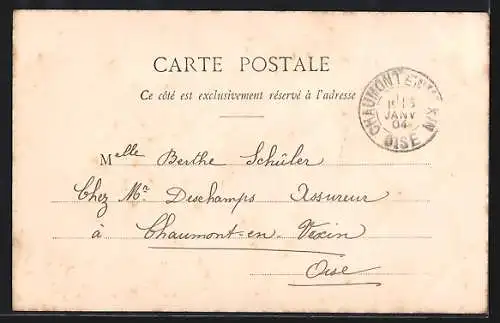 CARTE POSTALE
Ce côté est exclusivement réservé à l'adresse
CHAUMONT EN VEXIN
JANV
04
OISE
Melle Berthe Schüler
Chez Mr. Deschamps Assureur
à Chaumont-en-Vexin
Oise